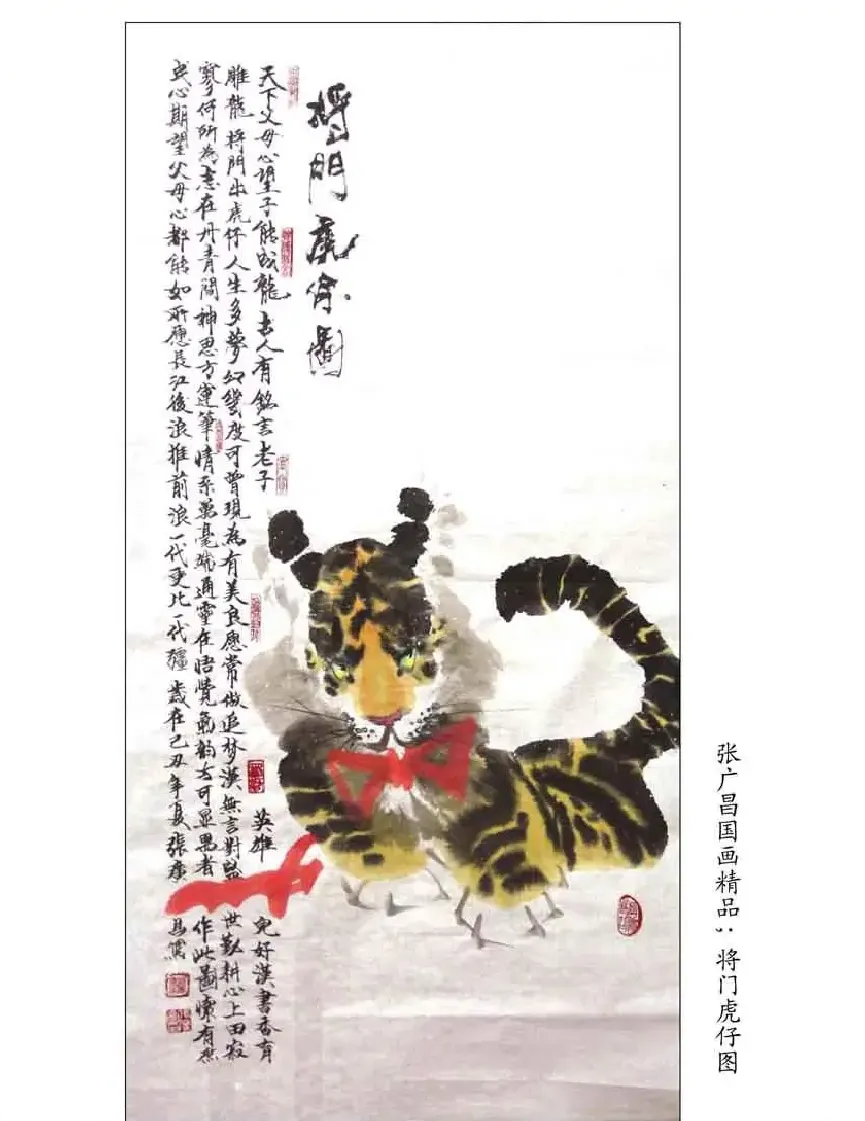 张广昌国画精品；将门虎仔图
將門虎仔圖
天下父母心望子能成龍古人有銘言老子英雄兒好漢書香有
雕龍將門出虎仔人生多夢幻幾度可曾現為有美良愿常做追梦漢無言對盛世勤耕心上田寂
寥何所為志在丹青間神思方運筆情系墨毫端通靈在悟覺氣韵方可显愚者作此圖懷有
心期望父母心都能如所愿長江後浪推前浪一代更比一代疆歲在己丑年夏張廣昌寫